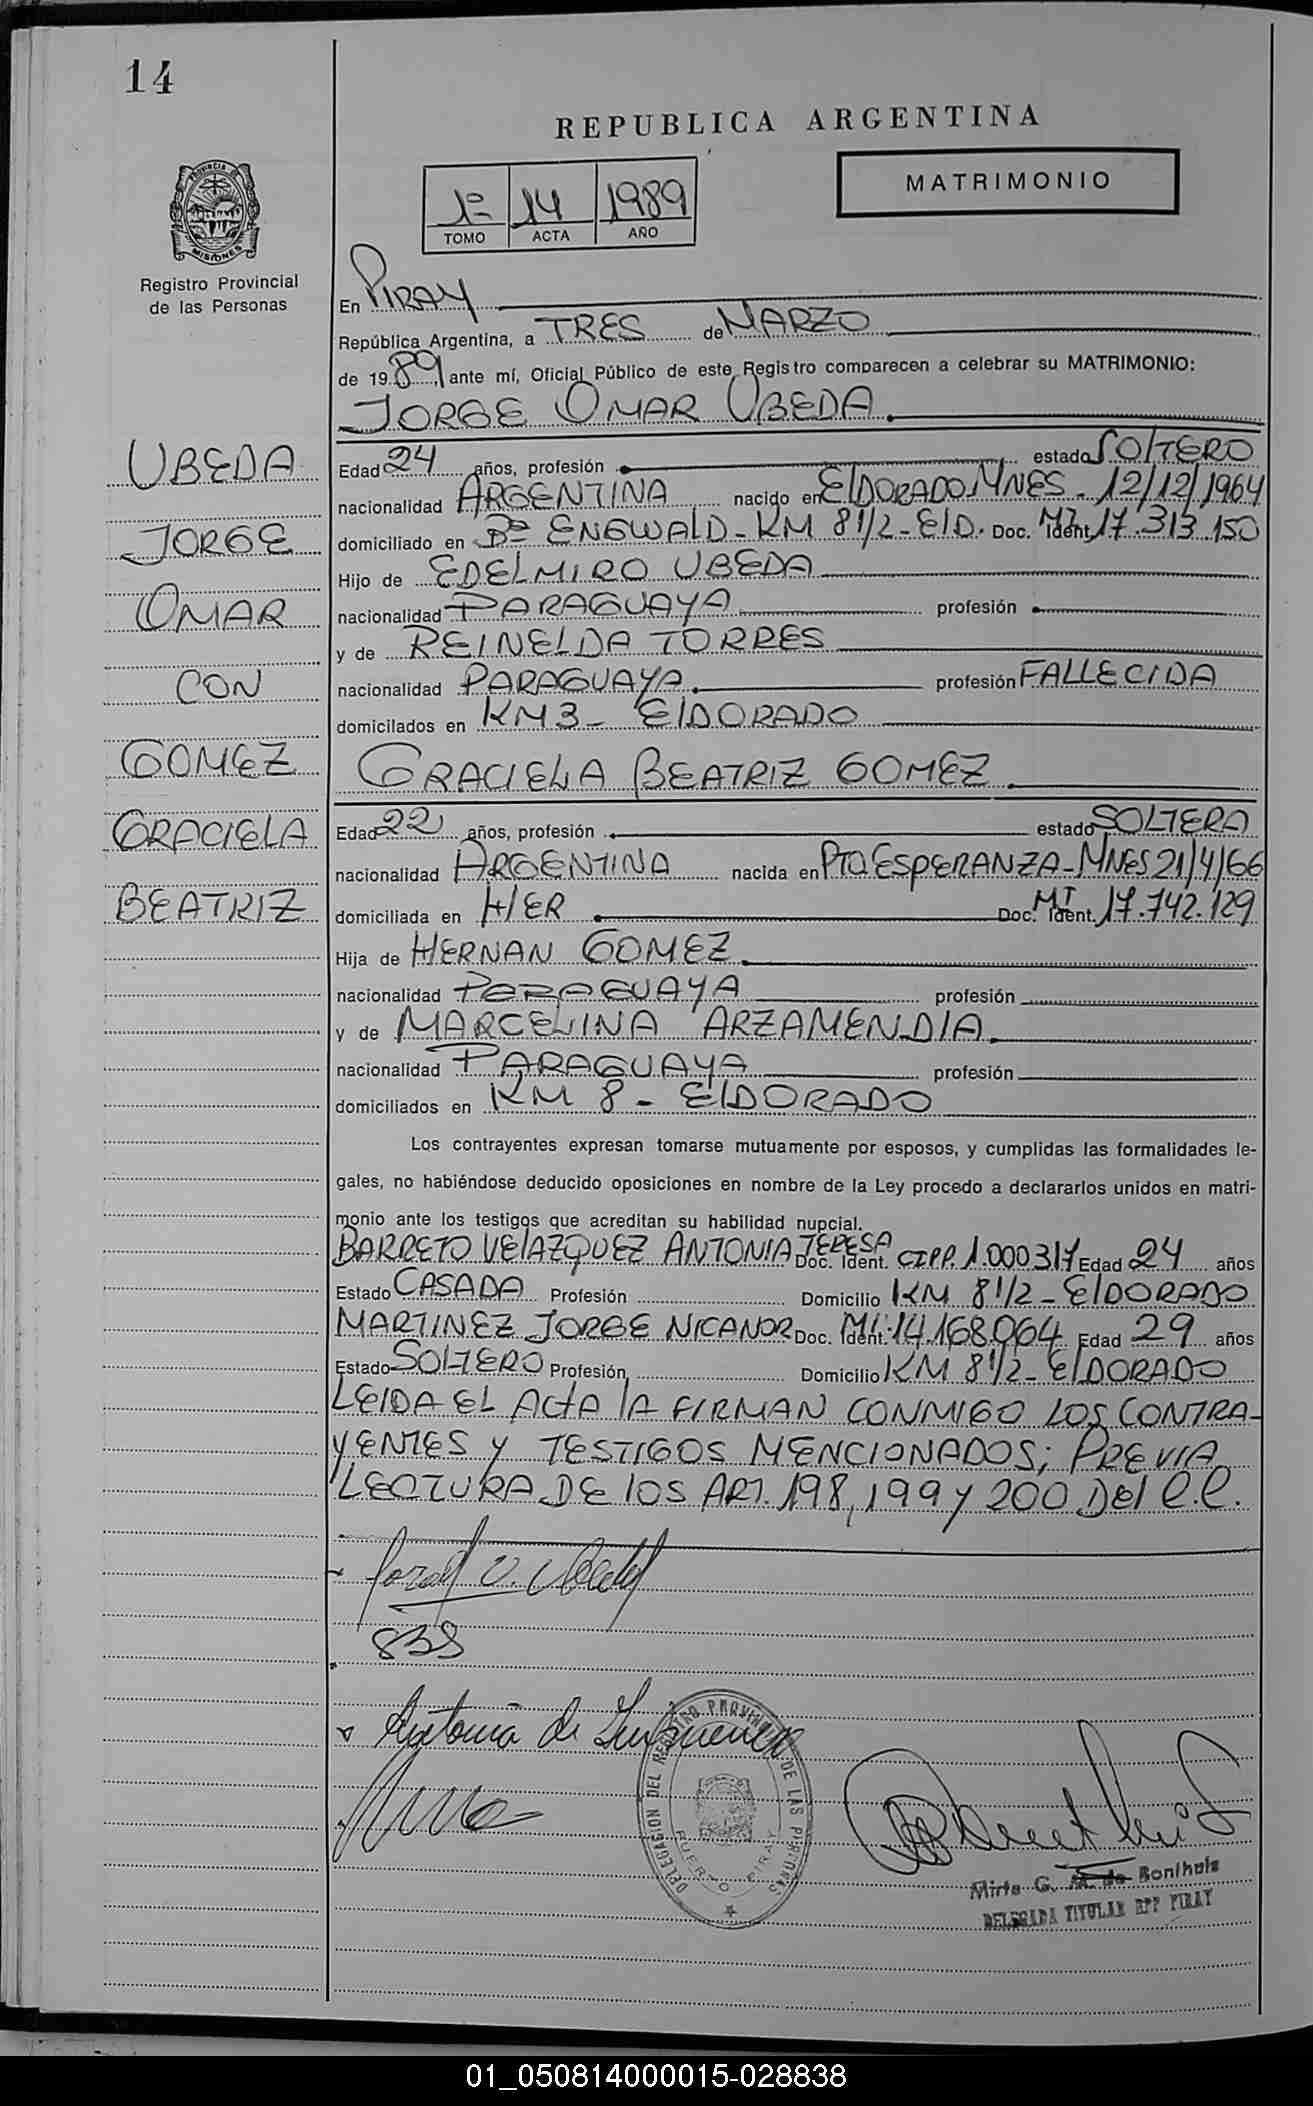 14
REPUBLICA ARGENTINA
PROVINCIA DE MISIONES
1º 14 1989
TOMO ACTA AÑO
MATRIMONIO
Registro Provincial
de las Personas
En PIRAY
República Argentina, a TRES de MARZO
de 1989, ante mí, Oficial Público de este Registro comparecen a celebrar su MATRIMONIO:
JORGE OMAR UBEDA
UBEDA
JORGE
OMAR
CON
GOMEZ
GRACIELA
BEATRIZ
Edad 24 años, profesión estado SOLTERO
nacionalidad ARGENTINA nacido en ELDORADO MNES. 12/12/1964
domiciliado en Bº ENGWALD - KM 8 1/2 - ELD. Doc. Ident. MI 17.313.150
Hijo de EDELMIRO UBEDA
nacionalidad PARAGUAYA profesión
y de REINELDA TORRES
nacionalidad PARAGUAYA profesión FALLECIDA
domicilados en KM 3 - ELDORADO
GRACIELA BEATRIZ GOMEZ
Edad 22 años, profesión estado SOLTERA
nacionalidad ARGENTINA nacida en PTO ESPERANZA - MNES 21/4/66
domiciliada en Doc. Ident. MI 17.742.129
Hija de HERNAN GOMEZ
nacionalidad PARAGUAYA profesión
y de MARCELINA ARZAMENDIA
nacionalidad PARAGUAYA profesión
domiciliados en KM 8 - ELDORADO
Los contrayentes expresan tomarse mutuamente por esposos, y cumplidas las formalidades le-
gales, no habiéndose deducido oposiciones en nombre de la Ley procedo a declararlos unidos en matri-
monio ante los testigos que acreditan su habilidad nupcial.
BARRETO VELAZQUEZ ANTONIA TERESA Doc. Ident. CIPP. 1.000317 Edad 24 años
Estado CASADA Profesión Domicilio KM 8 1/2 - ELDORADO
MARTINEZ JORGE NICANOR Doc. Ident. MI: 14.168.064 Edad 29 años
Estado SOLTERO Profesión Domicilio KM 8 1/2 - ELDORADO
LEIDA EL ACTA LA FIRMAN CONMIGO LOS CONTRA-
YENTES Y TESTIGOS MENCIONADOS; PREVIA
LECTURA DE LOS ART. 198, 199 Y 200 DEL C.C.
Antonia de
DELEGACION DEL REGISTRO PROVINCIAL DE LAS PERSONAS
PUERTO PIRAY
Mirta G. M. de Bonlhols
DELEGADA TITULAR RPP PIRAY
01_050814000015-028838